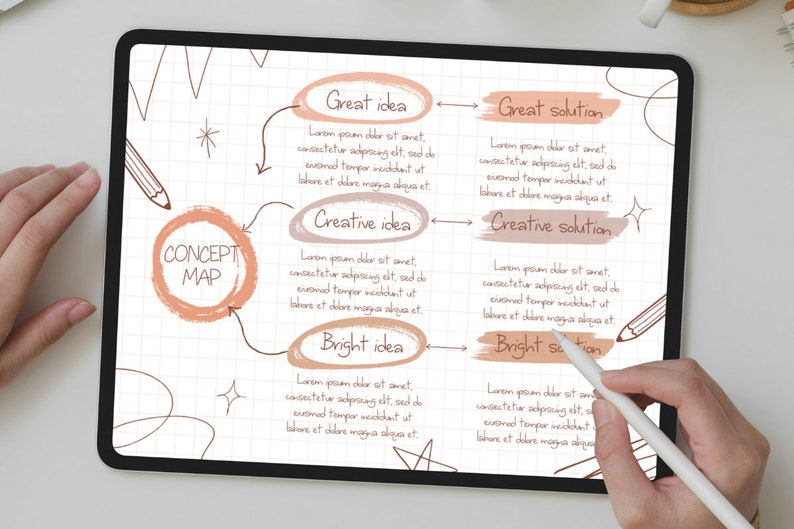 Great idea
Great solution
Lorem ipsum dolor sit amet,
consectetur adipiscing elit, sed do
eiusmod tempor incididunt ut
labore et dolore magna aliqua et.
Lorem ipsum dolor sit amet,
consectetur adipiscing elit, sed do
eiusmod tempor incididunt ut
labore et dolore magna aliqua et.
CONCEPT
MAP
Creative idea
Creative solution
Lorem ipsum dolor sit amet,
consectetur adipiscing elit, sed do
eiusmod tempor incididunt ut
labore et dolore magna aliqua et.
Lorem ipsum dolor sit amet,
consectetur adipiscing elit, sed do
eiusmod tempor incididunt ut
labore et dolore magna aliqua et.
Bright idea
Bright solution
Lorem ipsum dolor sit amet,
consectetur adipiscing elit, sed do
eiusmod tempor incididunt ut
labore et dolore magna aliqua et.
Lorem ipsum dolor sit
consectetur adipiscing elit
eiusmod tempor incididunt
labore et dolore magna